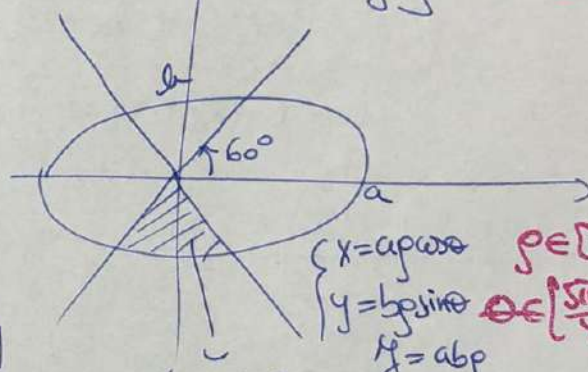 b
60°
a
{ x = aρcosθ ρ∈[
y = bρsinθ θ∈[5π
J = abρ